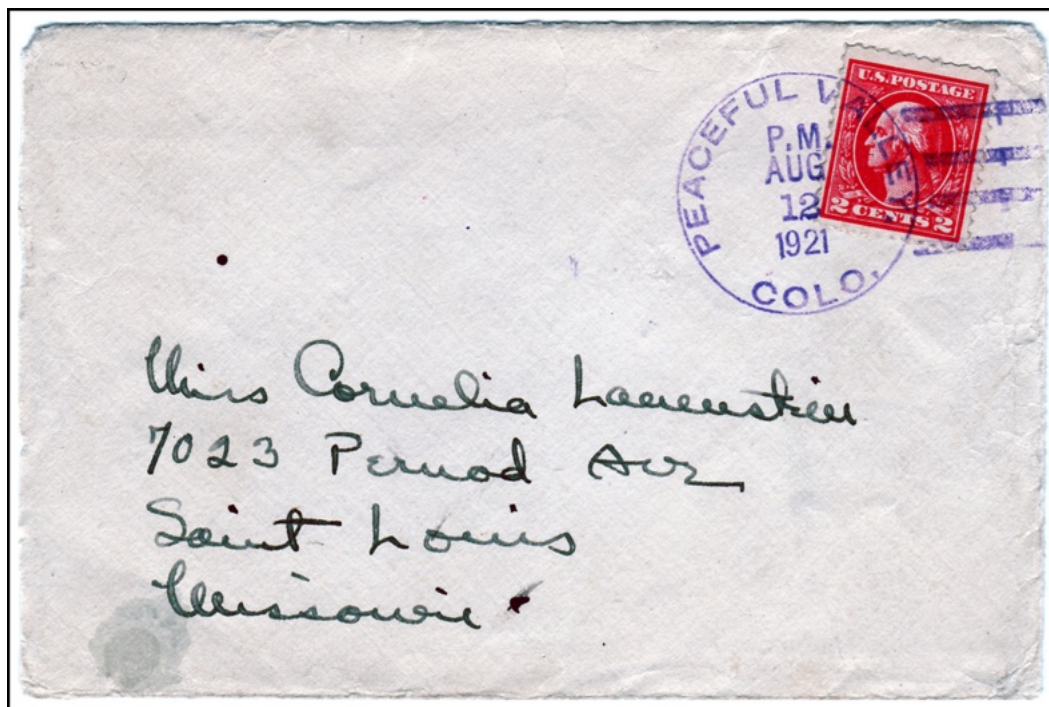 U.S. POSTAGE
2 CENTS 2
PEACEFUL VALLEY
P.M.
AUG
12
1921
COLO.
Miss Cornelia
7023 Pernod Ave
Saint Louis
Missouri